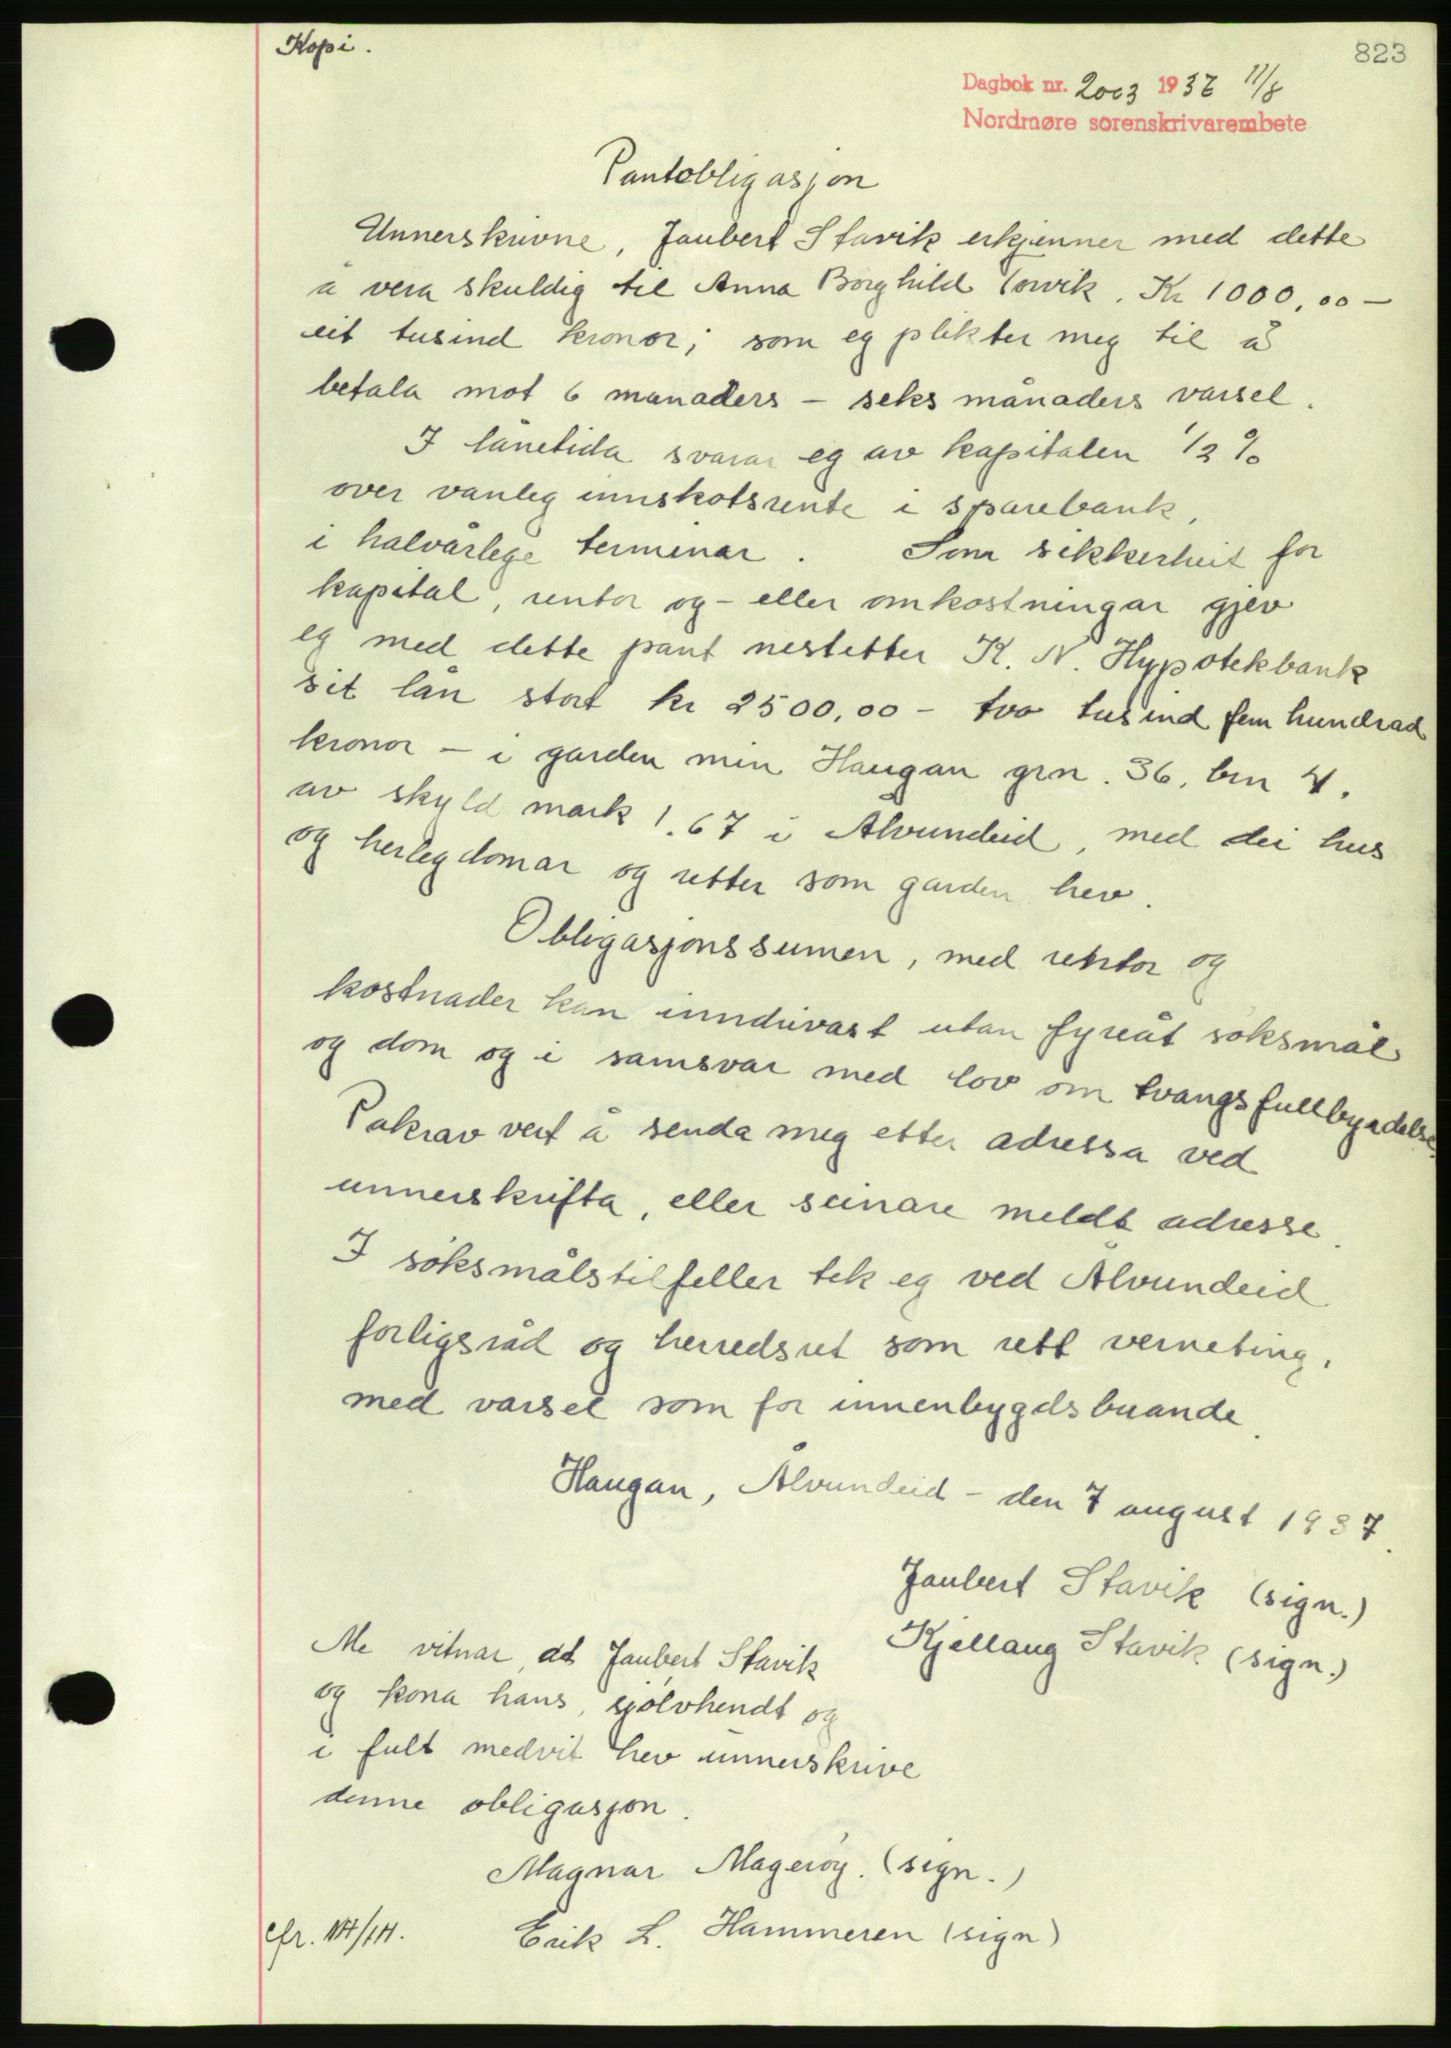 Kopi.
823
Dagbok nr. 2003 1937 11/8
Nordmøre sorenskrivarembete
Pantobligasjon
Unnerskrivne, Jaubert Stavik erkjenner med dette
å vera skuldig til Anna Borghild Torvik. Kr 1000,00 –
eit tusind kronor; som eg plikter meg til å
betala mot 6 manaders – seks månaders varsel.
I lånetida svarar eg av kapitalen 1/2 %
over vanleg innskotsrente i sparebank,
i halvårlege terminar. Som sikkerheit for
kapital, rentor og – eller omkostningar gjev
eg med dette pant nestetter K. N. Hypotekbank
sit lån stort kr 2500,00 – tvo tusind fem hundrad
kronor – i garden min Haugan grn. 36, brn 4.
av skyld mark 1.67 i Ålvundeid, med dei hus
og herlegdomar og retter som garden hev.
Obligasjonssumen, med rentor og
kostnader kan inndrivast utan fyreåt søksmål
og dom og i samsvar med lov om tvangsfullbyrdelse.
Pakrav vert å senda meg etter adressa ved
unnerskrifta, eller seinare meldt adresse.
I søksmålstilfeller tek eg ved Ålvundeid
forligsråd og herredsret som rett verneting,
med varsel som for innenbygdsbuande.
Haugan, Ålvundeid – den 7 august 1937.
Jaubert Stavik (sign.)
Kjellaug Stavik (sign.)
Me vitnar, at Jaubert Stavik
og kona hans, sjølvhendt og
i fult medvit hev unnerskrive
denne obligasjon.
Magnar Magerøy. (sign.)
Erik L. Hammeren (sign)
cfr.